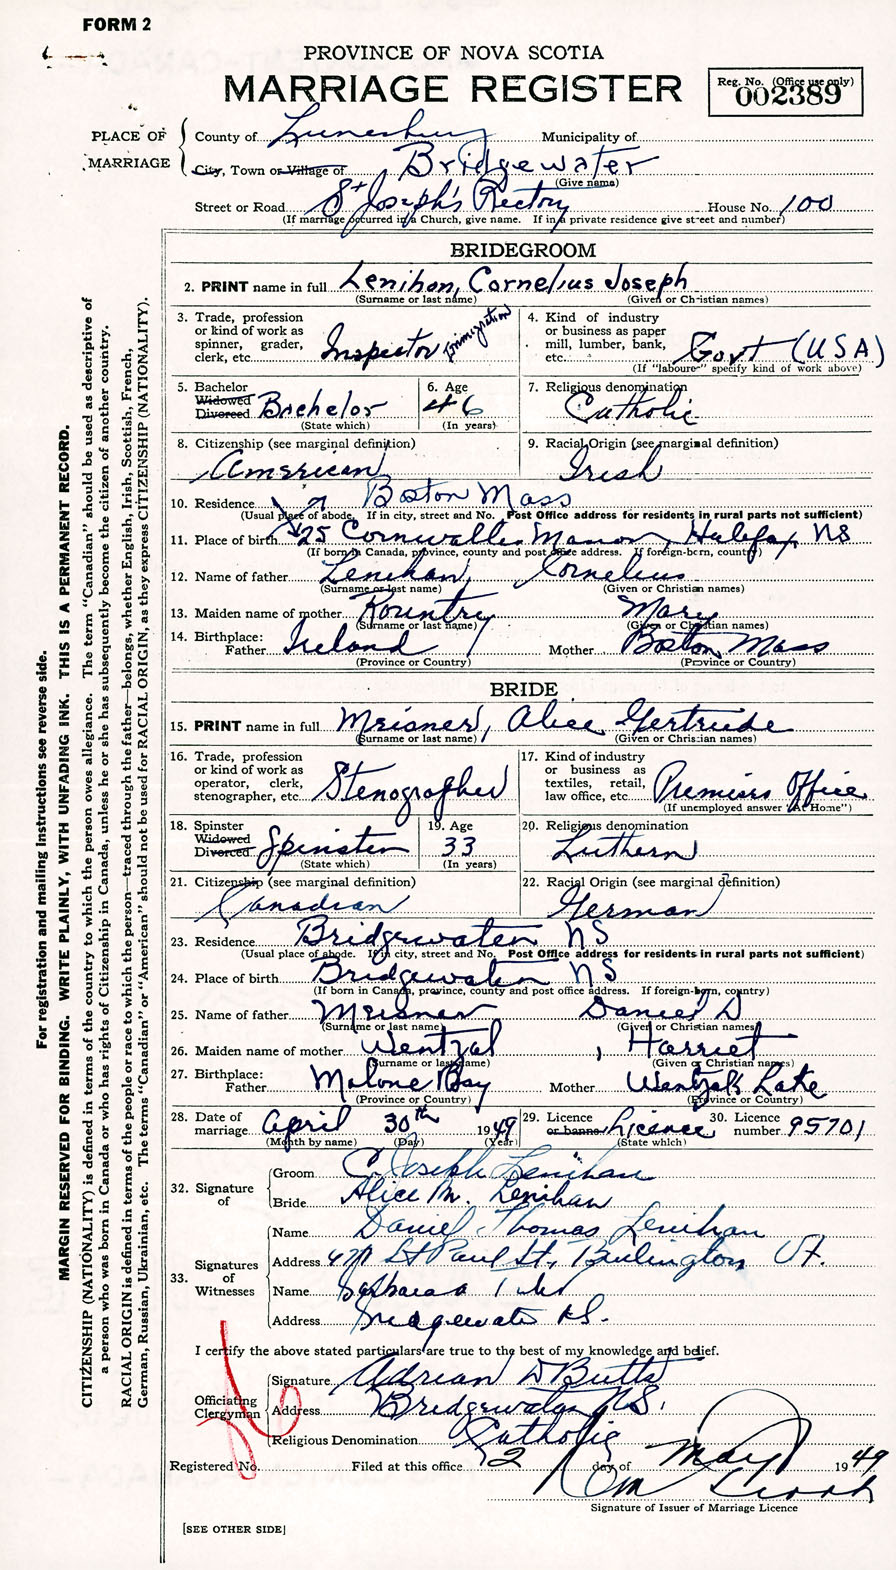 FORM 2
PROVINCE OF NOVA SCOTIA
MARRIAGE REGISTER
Reg. No. (Office use only)
002389
PLACE OF MARRIAGE
County of Lunenburg Municipality of
City, Town or Village of Bridgewater
(Give name)
Street or Road St Joseph's Rectory House No. 100
(If marriage occurred in a Church, give name. If in a private residence give street and number)
BRIDEGROOM
2. PRINT name in full Lenihan, Cornelius Joseph
(Surname or last name) (Given or Christian names)
3. Trade, profession or kind of work as spinner, grader, clerk, etc. Inspector Immigration
4. Kind of industry or business as paper mill, lumber, bank, etc. Govt (USA)
(If "laborer" specify kind of work above)
5. Bachelor Widowed Divorced Bachelor
(State which)
6. Age 46
(In years)
7. Religious denomination Catholic
8. Citizenship (see marginal definition) American
9. Racial Origin (see marginal definition) Irish
10. Residence Boston Mass
(Usual place of abode. If in city, street and No. Post Office address for residents in rural parts not sufficient)
11. Place of birth 25 Cornwallis Manor, Halifax NS
(If born in Canada, province, county and post office address. If foreign-born, country)
12. Name of father Lenihan, Cornelius
(Surname or last name) (Given or Christian names)
13. Maiden name of mother Rountry Mary
(Surname or last name) (Given or Christian names)
14. Birthplace: Father Ireland Mother Boston Mass
(Province or Country) (Province or Country)
BRIDE
15. PRINT name in full Meisner, Alice Gertrude
(Surname or last name) (Given or Christian names)
16. Trade, profession or kind of work as operator, clerk, stenographer, etc. Stenographer
17. Kind of industry or business as textiles, retail, law office, etc. Premiers Office
(If unemployed answer "At Home")
18. Spinster Widowed Divorced Spinster
(State which)
19. Age 33
(In years)
20. Religious denomination Luthern
21. Citizenship (see marginal definition) Canadian
22. Racial Origin (see marginal definition) German
23. Residence Bridgewater NS
(Usual place of abode. If in city, street and No. Post Office address for residents in rural parts not sufficient)
24. Place of birth Bridgewater NS
(If born in Canada, province, county and post office address. If foreign-born, country)
25. Name of father Meisner Daniel D
(Surname or last name) (Given or Christian names)
26. Maiden name of mother Wentzal, Harriet
(Surname or last name) (Given or Christian names)
27. Birthplace: Father Mahone Bay Mother Wentzals Lake
(Province or Country) (Province or Country)
28. Date of marriage April 30th 1949
(Month by name) (Day) (Year)
29. Licence or banns Licence
(State which)
30. Licence number 95701
32. Signature of
Groom C. Joseph Lenihan
Bride Alice M. Lenihan
33. Signatures of Witnesses
Name Daniel Thomas Lenihan
Address St Paul St., Burlington Vt.
Name Barbara
Address Bridgewater N.S.
I certify the above stated particulars are true to the best of my knowledge and belief.
Officiating Clergyman
Signature Adrian D Butts
Address Bridgewater N.S.
Religious Denomination Catholic
Registered No. Filed at this office 2 day of May 1949
Signature of Issuer of Marriage Licence
[SEE OTHER SIDE]
For registration and mailing instructions see reverse side.
MARGIN RESERVED FOR BINDING. WRITE PLAINLY, WITH UNFADING INK. THIS IS A PERMANENT RECORD.
CITIZENSHIP (NATIONALITY) is defined in terms of the country to which the person owes allegiance. The term "Canadian" should be used as descriptive of
a person who was born in Canada or who has rights of Citizenship in Canada, unless he or she has subsequently become the citizen of another country.
RACIAL ORIGIN is defined in terms of the people or race to which the person—traced through the father—belongs, whether English, Irish, Scottish, French,
German, Russian, Ukrainian, etc. The terms "Canadian" or "American" should not be used for RACIAL ORIGIN, as they express CITIZENSHIP (NATIONALITY).